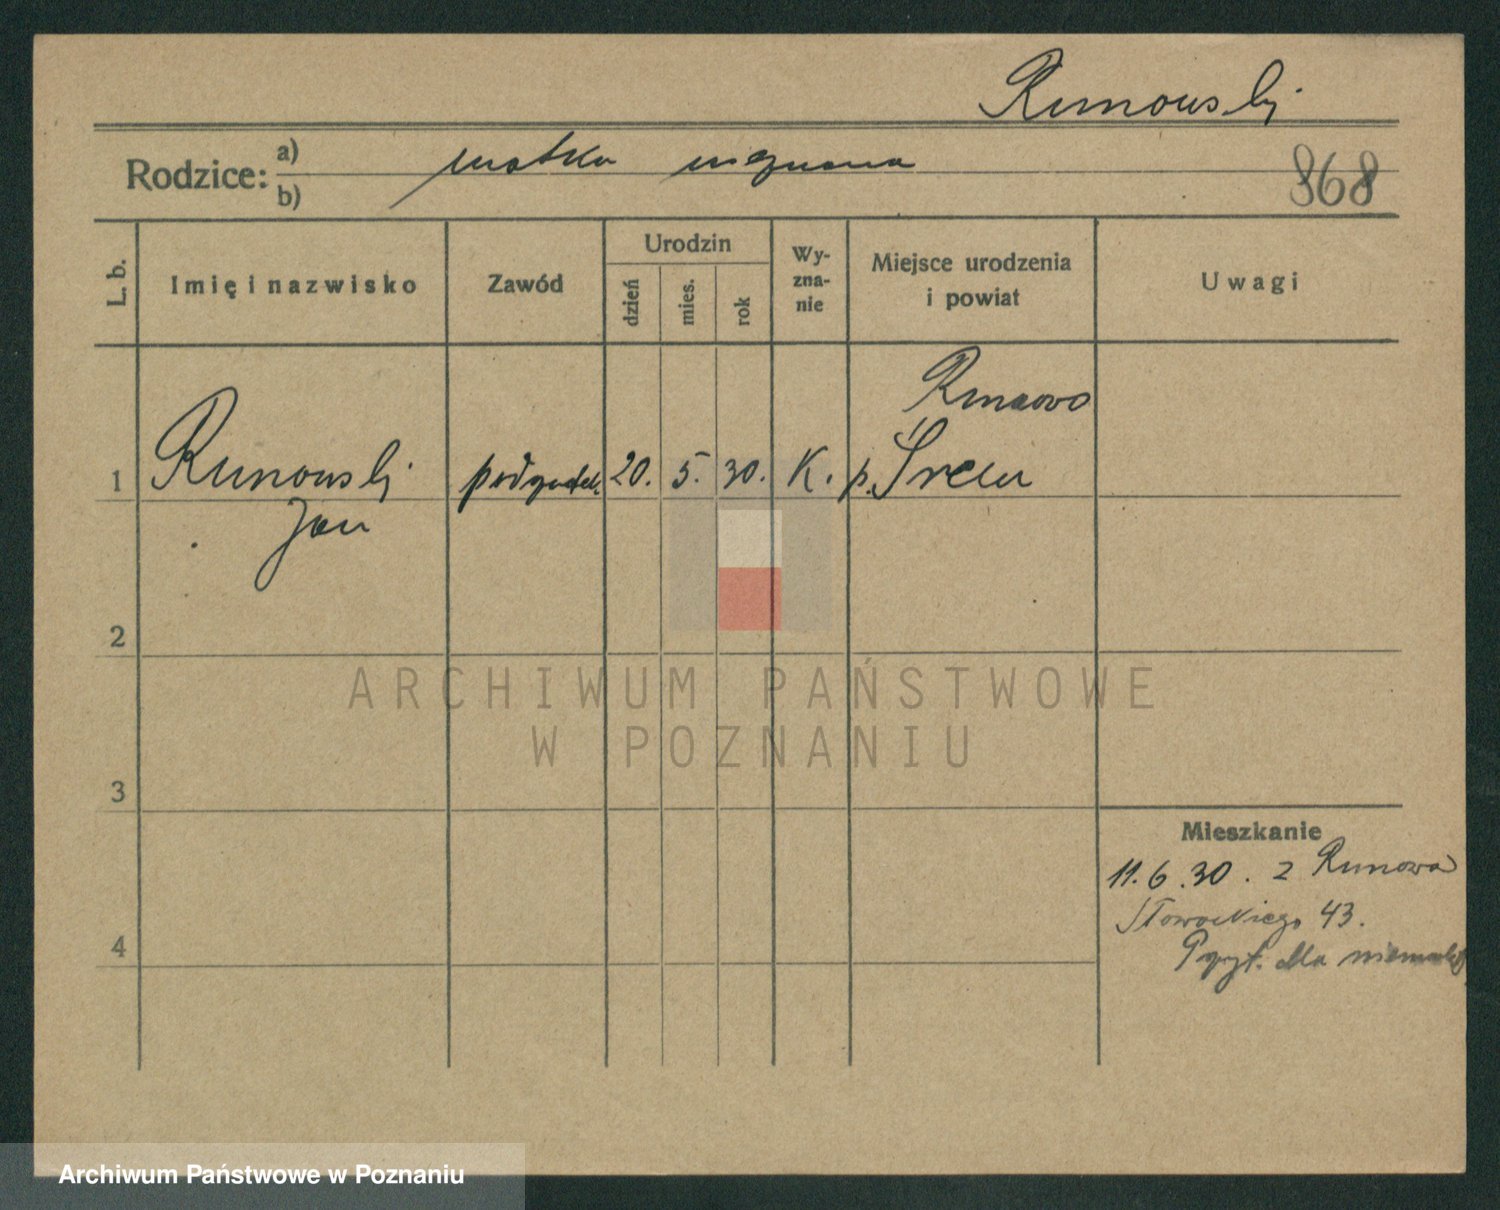 Runowski
Rodzice: a)
b)
matka nieznana
868
L. b.
Imię i nazwisko
Zawód
Urodzin
dzień
mies.
rok
Wy-
zna-
nie
Miejsce urodzenia
i powiat
Uwagi
1
Runowski
Jan
podrzutek
20. 5. 30. K.
Runowo
p. Śrem
2
3
4
Mieszkanie
11.6.30. z Runowa
Słowackiego 43.
Przyt. dla
ARCHIWUM PAŃSTWOWE
W POZNANIU
Archiwum Państwowe w Poznaniu